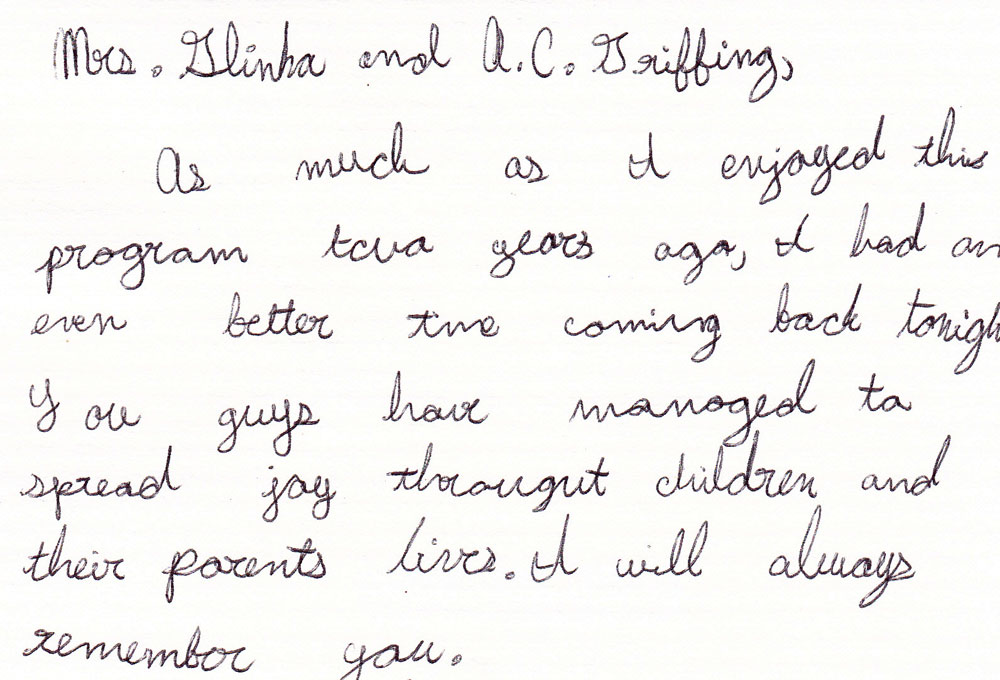 Mrs. Glinka and A.C. Griffing,
As much as I enjoyed this
program two years ago, I had an
even better time coming back tonigh
You guys have managed to
spread joy througut children and
their parents lives. I will always
remember you.